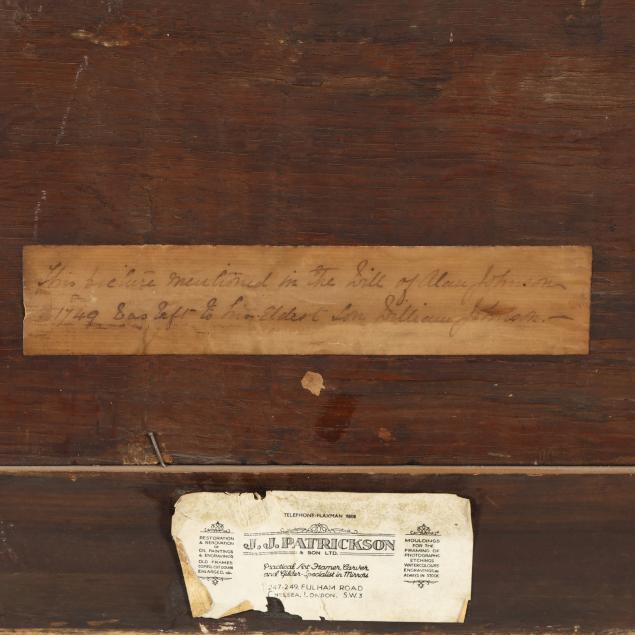 This picture mentioned in the Will of Alan Johnson
in 1749 was left to his Eldest Son William Johnson.—
TELEPHONE-FLAXMAN
RESTORATION
& RENOVATION
OF
OIL PAINTINGS
& ENGRAVINGS
OLD FRAMES
J. J. PATRICKSON
& SON LTD.
Practical Art Framer, Carver
and Gilder-Specialist in Mirrors
247-249, FULHAM ROAD
CHELSEA, LONDON, S.W.3
MOULDINGS
FOR THE
FRAMING OF
PHOTOGRAPHS
ETCHINGS
WATERCOLOURS
ENGRAVINGS
ALWAYS IN STOCK